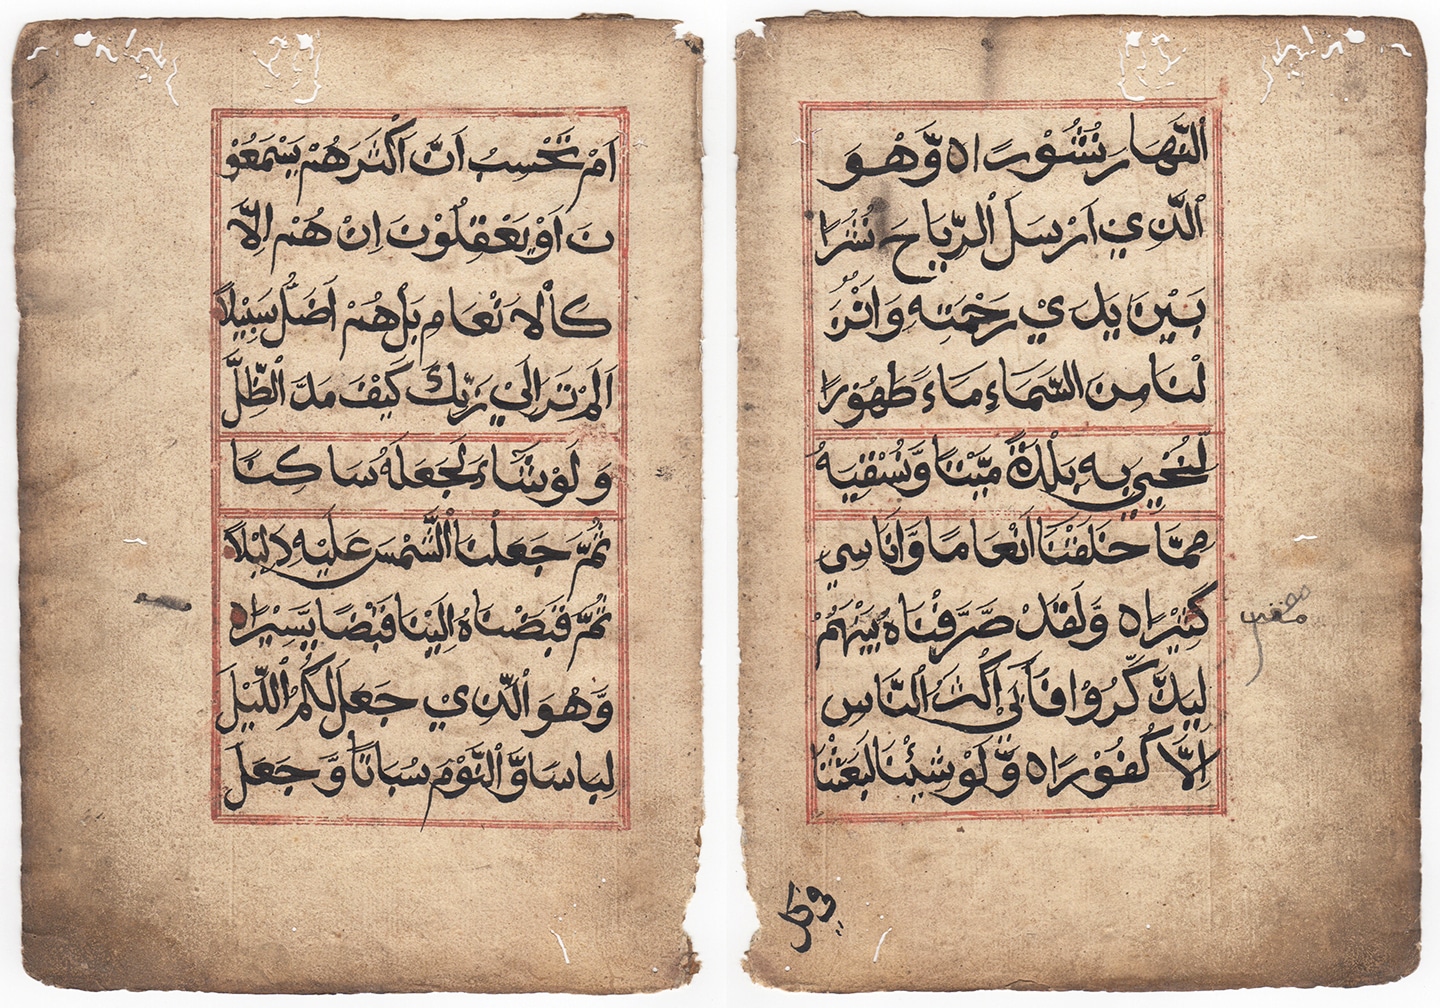 اَمْ تَحْسِبُ اَنَّ اَكْثَرَهُمْ يَسْمَعُوْ
نَ اَوْ يَعْقِلُوْنَ اِنْ هُمْ اِلَّا
كَالاَنْعَامِ بَلْ هُمْ اَضَلُّ سَبِيْلًا
اَلَمْ تَرَ اِلَيْ رَبِّكَ كَيْفَ مَدَّ الظِّلَّ
وَلَوْ شَآءَ لَجَعَلَهُ سَاكِنًا
ثُمَّ جَعَلْنَا الشَّمْسَ عَلَيْهِ دَلِيْلًا
ثُمَّ قَبَضْنَاهُ اِلَيْنَا قَبْضًا يَّسِيْرًا ه
وَهُوَ الَّذِيْ جَعَلَ لَكُمُ الَّليْلَ
لِبَاسًا وَّالنَّوْمَ سُبَاتًا وَّ جَعَلَ
النَّهَارَ نُشُوْرًا ه وَّهُوَ
الَّذِيْ اَرْسَلَ الرِّيَاحَ نُشُرًا
بَيْنَ يَدَيْ رَحْمَتِهِ وَاَنْزَ
لْنَا مِنَ السَّمَاءِ مَاءً طَهُوْرًا
لِنُحْيِيَ بِهِ بَلْدَةً مَّيْتًا وَّنُسْقِيَهُ
مِمَّا خَلَقْنَا اَنْعَامًا وَّاَنَاسِيَ
كَثِيْرًا ه وَلَقَدْ صَرَّفْنَاهُ بَيْنَهُمْ
لِيَذَّكَّرُوْا فَاَبَيٰ اَكْثَرُ النَّاسِ
اِلَّا كُفُوْرًا ه وَّلَوْ شِئْنَا لَبَعَثْنَا
في كل